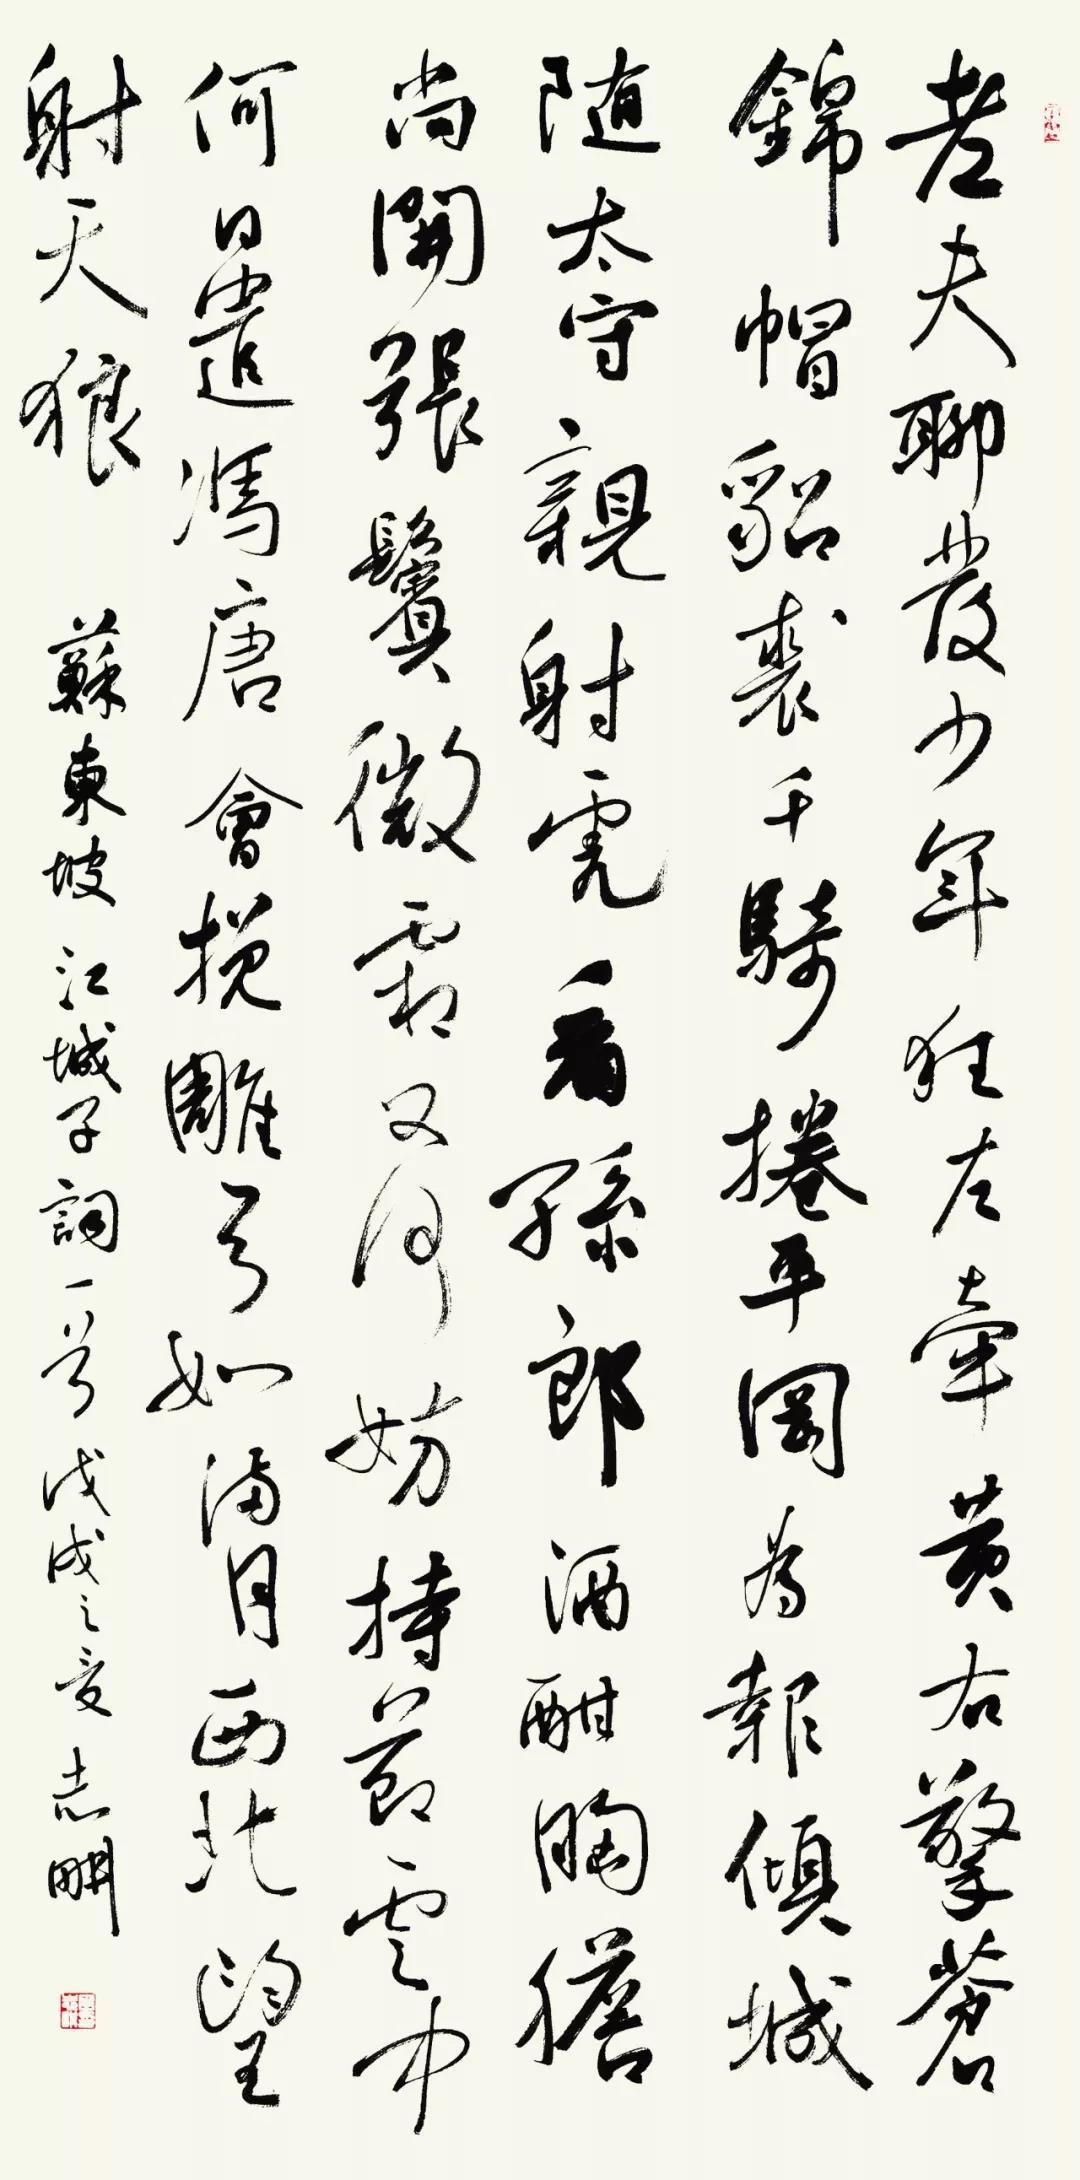 老夫聊發少年狂左牽黃右擎蒼
錦帽貂裘千騎捲平岡為報傾城
随太守親射虎看孫郎酒酣胸膽
尚開張鬢微霜又何妨持節雲中
何日遣馮唐會挽雕弓如滿月西北望
射天狼 蘇東坡江城子詞一首 戊戌之夏 志明